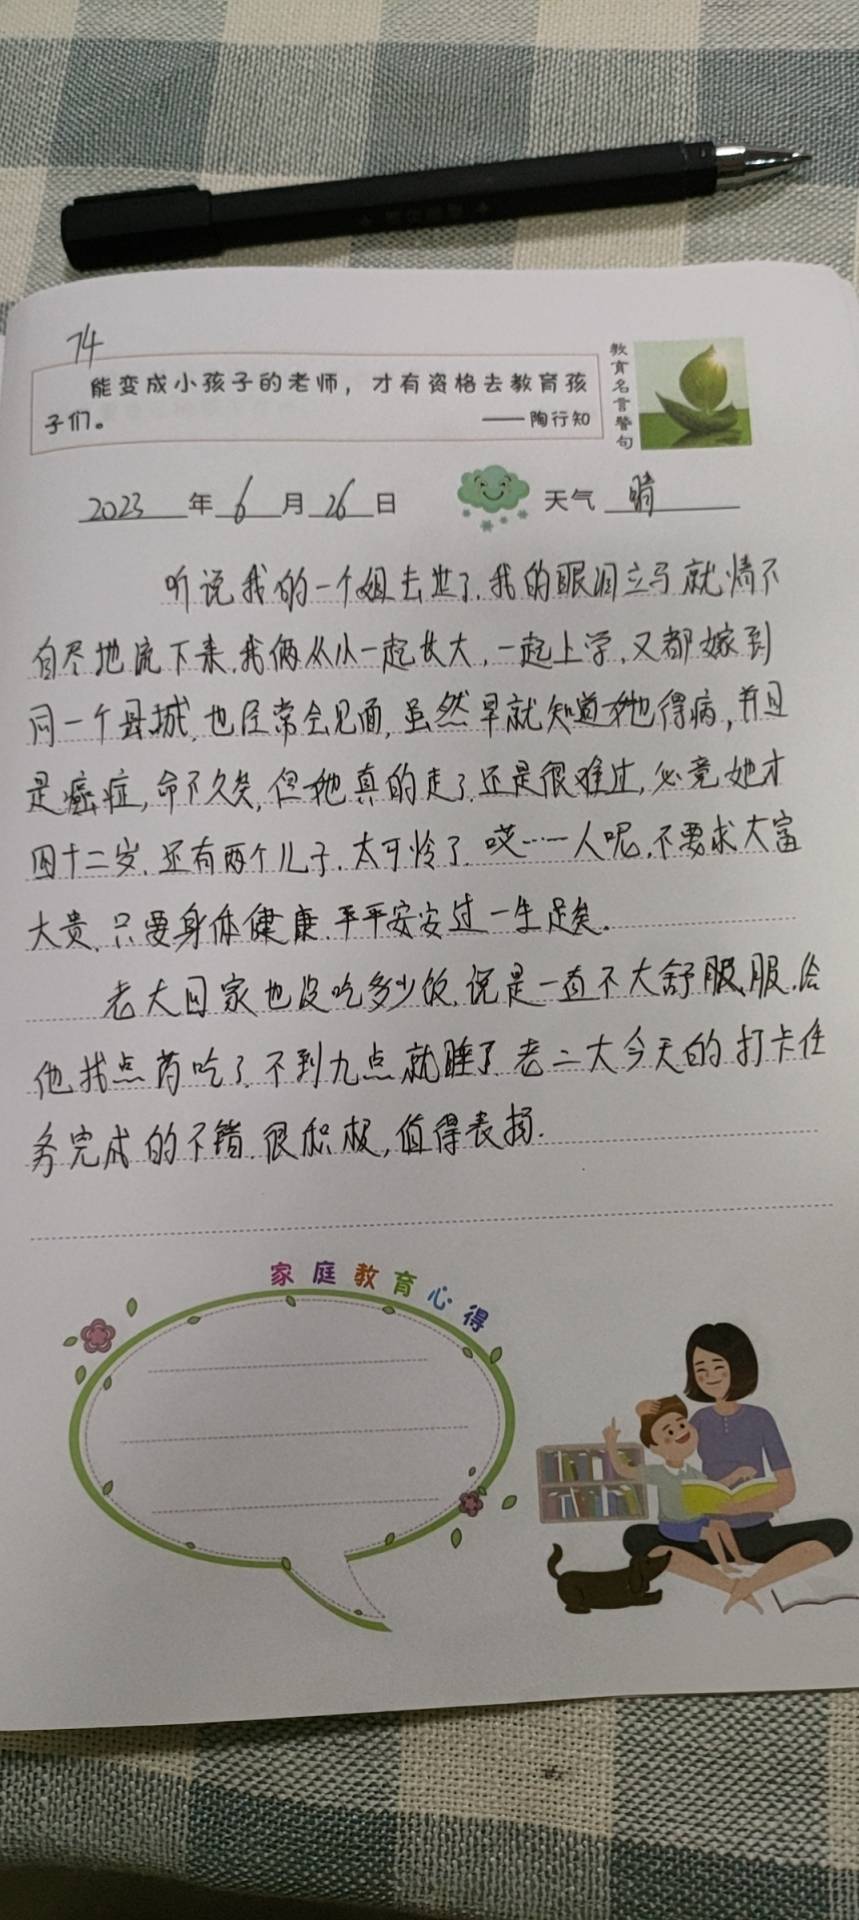 74
能变成小孩子的老师，才有资格去教育孩
子们。 ——陶行知
教育名言警句
2023年6月26日 天气 晴
听说我的一个姐去世了.我的眼泪立马就情不
自尽地流下来.我俩从小一起长大,一起上学,又都嫁到
同一个县城,也经常会见面,虽然早就知道她得病,并且
是癌症,命不久矣,但她真的走了,还是很难过,必竟她才
四十二岁.还有两个儿子.太可怜了.哎……人呢,不要求大富
大贵.只要身体健康.平平安安过一生足矣.
老大回家也没吃多少饭,说是一直不大舒服,服,给
他找点药吃了.不到九点就睡了.老二大今天的打卡任
务完成的不错.很积极,值得表扬.
家庭教育心得